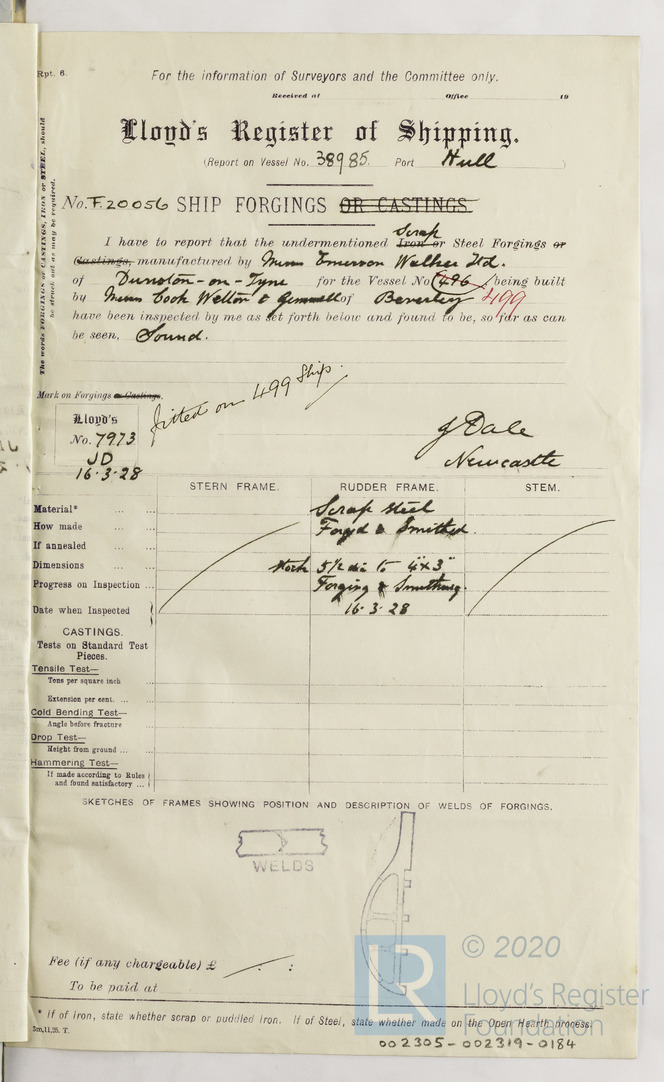 Rpt. 6.
For the information of Surveyors and the Committee only.
Received at Office 19
Lloyd's Register of Shipping.
(Report on Vessel No. 38985. Port Hull )
No. F.20056 SHIP FORGINGS OR CASTINGS
Scrap
I have to report that the undermentioned Iron or Steel Forgings or
Castings, manufactured by Messrs Emerson Walker Ltd.
of Dunston-on-Tyne for the Vessel No. 496 being built
by Messrs Cook Welton & Gemmell of Beverley 499
have been inspected by me as set forth below and found to be, so far as can
be seen, Sound.
The words FORGINGS or CASTINGS, IRON or STEEL, should
be struck out as may be required.
fitted on 499 Ship.
Mark on Forgings or Castings.
Lloyd's
No. 7973
JD
16.3.28
J Dale
Newcastle
STERN FRAME. RUDDER FRAME. STEM.
Material* Scrap steel
How made Forged & Smithed
If annealed
Dimensions Stock 5 1/2 dia to 4" x 3"
Progress on Inspection Forging & Smithing.
Date when Inspected 16.3.28
CASTINGS.
Tests on Standard Test
Pieces.
Tensile Test—
Tons per square inch
Extension per cent.
Cold Bending Test—
Angle before fracture
Drop Test—
Height from ground
Hammering Test—
If made according to Rules
and found satisfactory
SKETCHES OF FRAMES SHOWING POSITION AND DESCRIPTION OF WELDS OF FORGINGS.
WELDS
Fee (if any chargeable) £ : :
To be paid at
© 2020
Lloyd's Register
Foundation
LR
* If of Iron, state whether scrap or puddled Iron. If of Steel, state whether made on the Open Hearth process.
5m,11,25. T.
002305-002319-0184